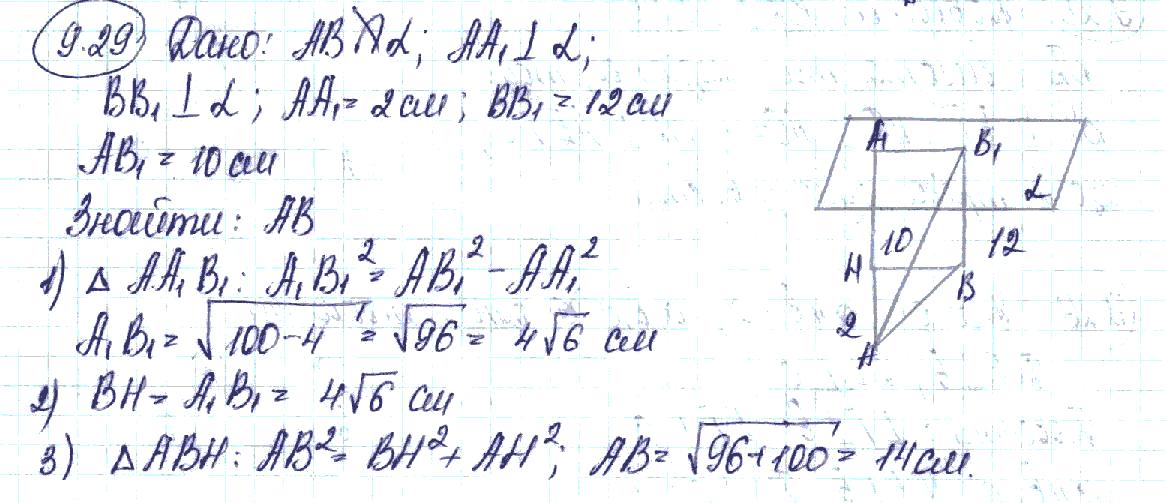 9.29 Дано: AB ∦ α; AA₁ ⊥ α;
BB₁ ⊥ α; AA₁ = 2 см; BB₁ = 12 см
AB₁ = 10 см
Знайти: AB
1) △ AA₁B₁: A₁B₁² = AB₁² - AA₁²
A₁B₁ = √100-4 = √96 = 4√6 см
2) BH = A₁B₁ = 4√6 см
3) △ ABH: AB² = BH² + AH²; AB = √96+100 = 14 см.
A₁ B₁
α
10 12
H B
2
A